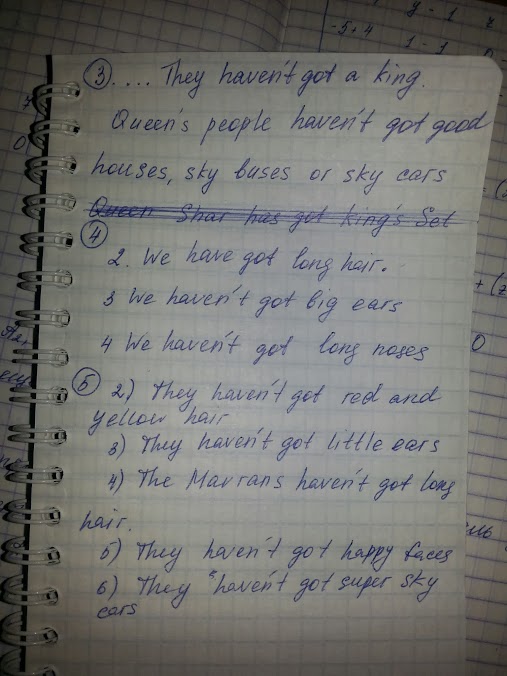 y - 1
-5+4
1 - 1
③.... They haven't got a king.
Queen's people haven't got good
houses, sky buses or sky cars
Queen Shar has got king's Set
④
2. We have got long hair.
3 We haven't got big ears
4 We haven't got long noses
⑤ 2) They haven't got red and
yellow hair
3) They haven't got little ears
4) The Mavrans haven't got long
hair.
5) They haven't got happy faces
6) They haven't got super sky
cars